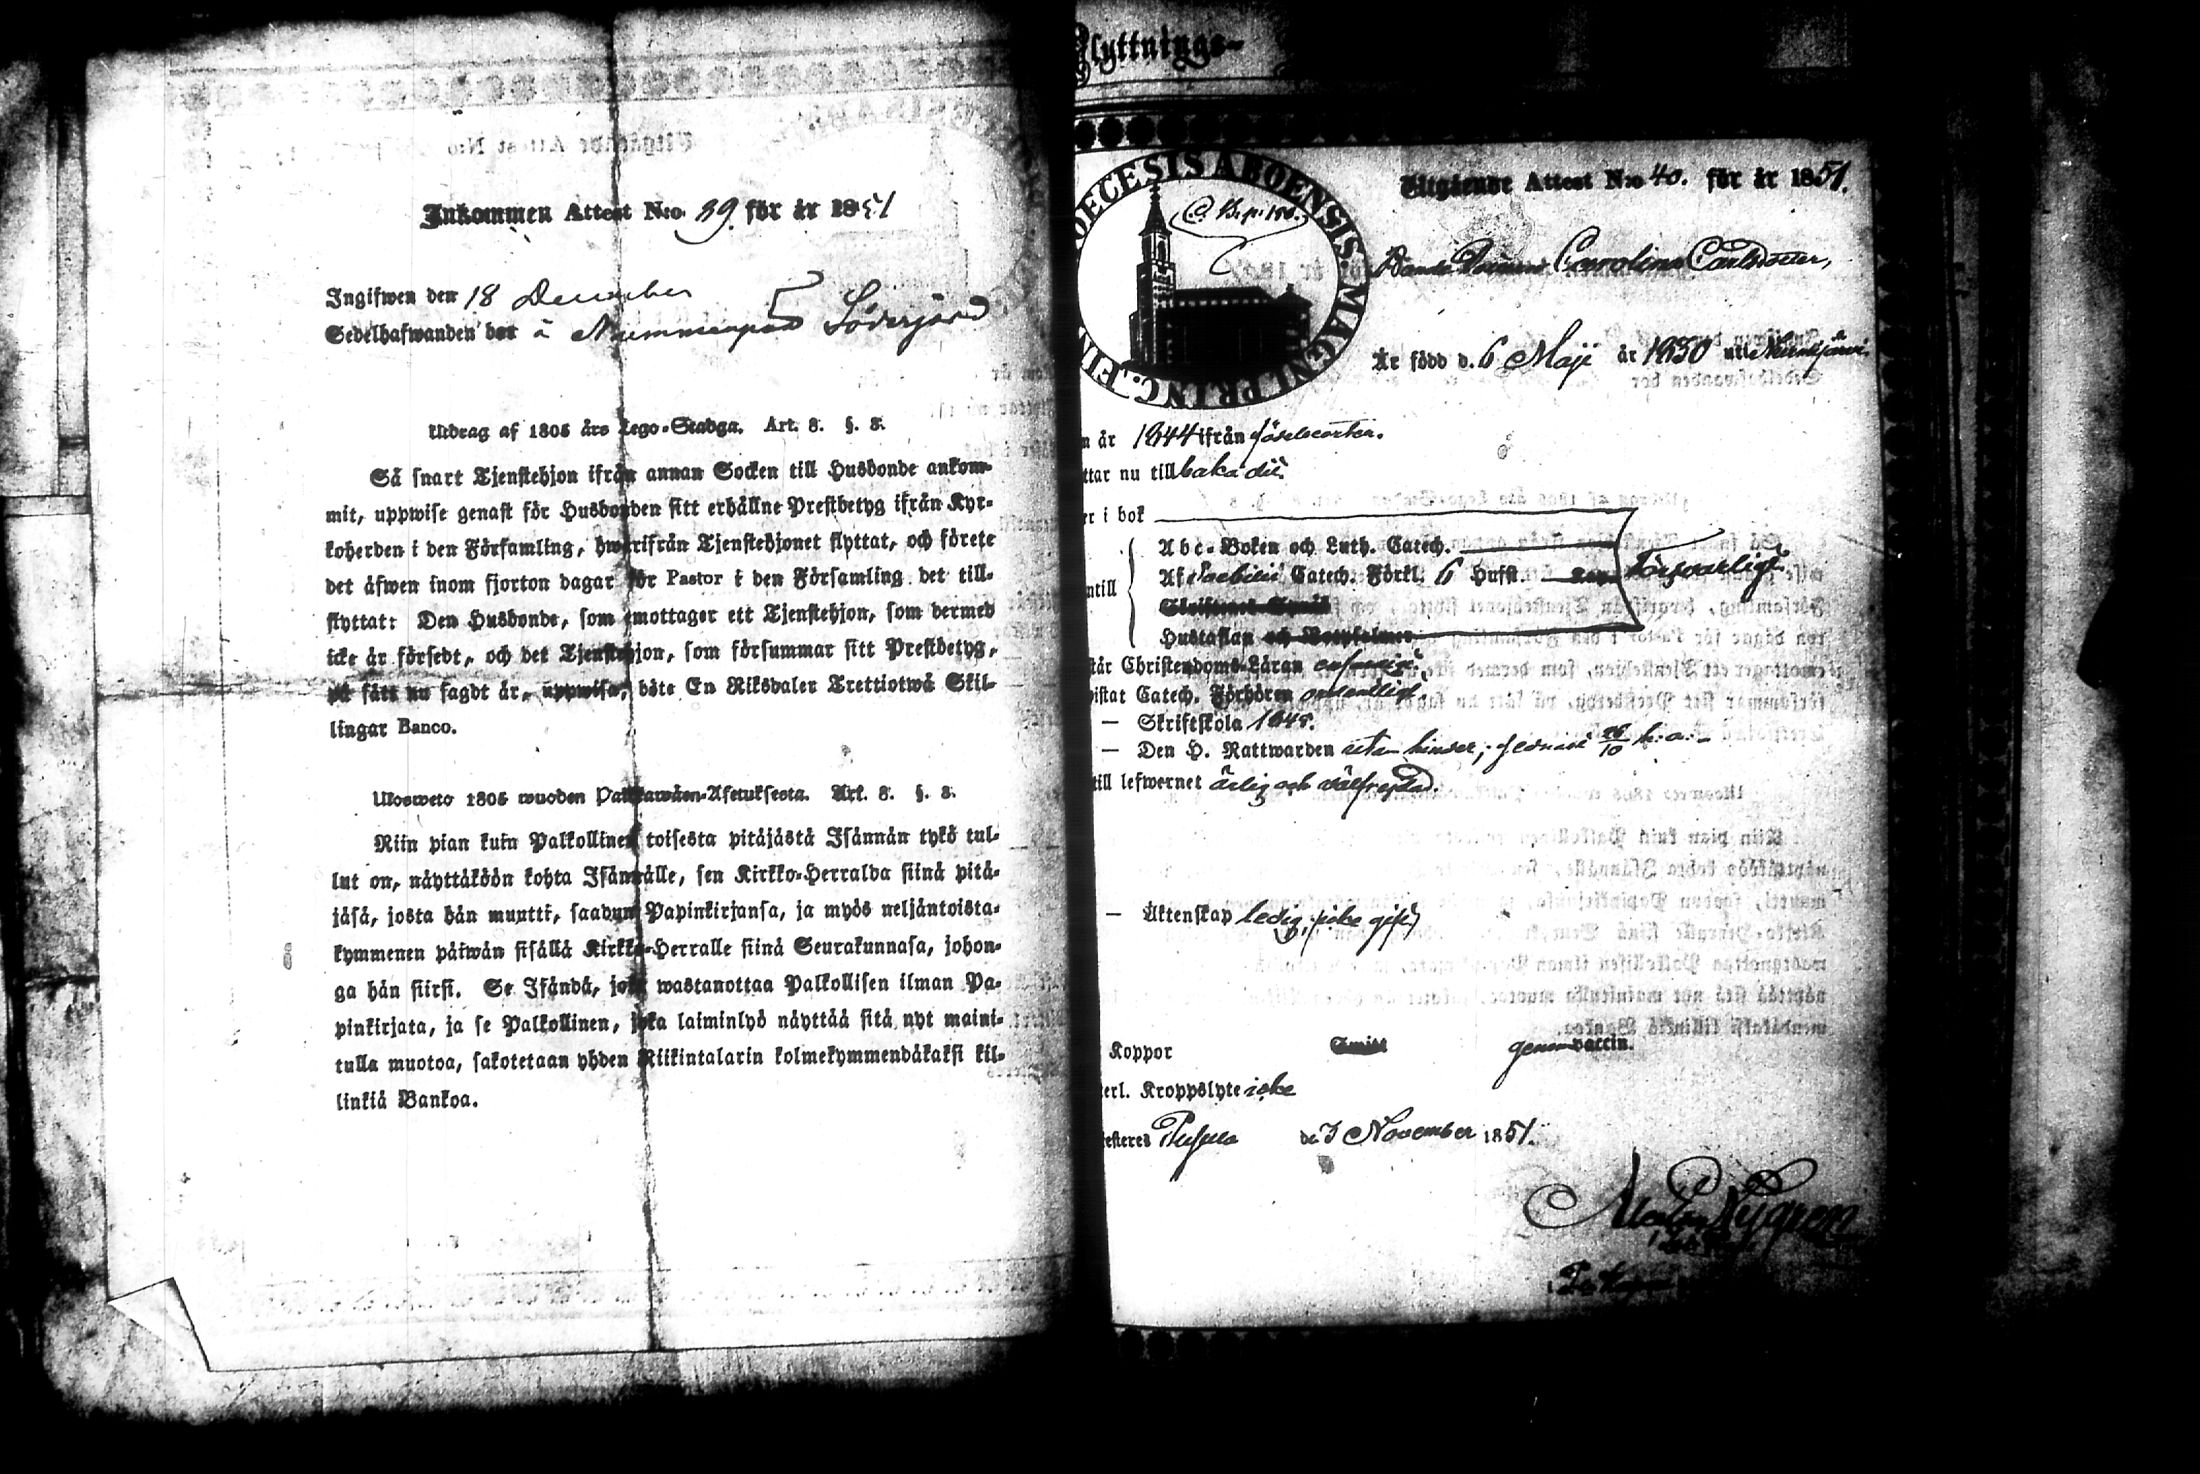 Inkommen Attest N:o 39 för år 1851
Ingifwen den 18 December
Sedelhafwanden bor å Nummenpää Söderjord
Utdrag af 1805 års Lego-Stadga. Art. 8. §. 8.
Så snart Tjenstehjon ifrån annan Socken till Husbonde ankom-
mit, uppwise genast för Husbonden sitt erhållne Prestbetyg ifrån Kyr-
koherden i den Församling, hwarifrån Tjenstehjonet flyttat, och förete
det äfwen inom fjorton dagar för Pastor i den Församling det till-
flyttat: Den Husbonde, som emottager ett Tjenstehjon, som dermed
icke är försedt, och det Tjenstehjon, som försummar sitt Prestbetyg,
på sätt nu sagdt är, uppwisa, böte En Riksdaler Trettiotwå Skil-
lingar Banco.
Ulosweto 1805 wuoden Palkkawäen-Asetuksesta. Art. 8. §. 8.
Niin pian kuin Palkollinen toisesta pitäjästä Isännän tykö tul-
lut on, näyttäköön kohta Isännälle, sen Kirkko-Herralda siinä pitä-
jäsä, josta hän muutti, saadun Papinkirjansa, ja myös neljäntoista-
kymmenen päiwän sisällä Kirkko-Herralle siinä Seurakunnasa, johon-
ga hän siirsi. Se Isändä, joka wastanottaa Palkollisen ilman Pa-
pinkirjata, ja se Palkollinen, joka laiminlyö näyttää sitä nyt maini-
tulla muotoa, sakotetaan yhden Riikintalarin kolmekymmendäkaksi kil-
linkiä Bankoa.
Flyttnings-
DIOECESIS ABOENSIS MAGNI PRINC. FIN
Utgående Attest N:o 40. för år 1851.
Carolina Carlsdotter,
Är född d. 6 Maji år 1830 uti
n år 1844 ifrån
ttar nu till baka dit.
er i bok
Abc-Boken och Luth. Catech.
Af Catech. Förkl. 6 Hufst. försvarligt
ntill
Hustaflan och Botpsalmer
står Christendoms-Läran
wistat Catech. Förhören ordentligt.
— Skriftskola 1848.
— Den H. Nattwarden utan hinder, 26/10 h. a.
till lefwernet ärlig och välfrejdad.
— Äktenskap ledig, icke gift
Koppor Smitt genom vaccin.
terl. Kroppslyte icke
testeres Pusula d. 3 November 1851.
Nygren